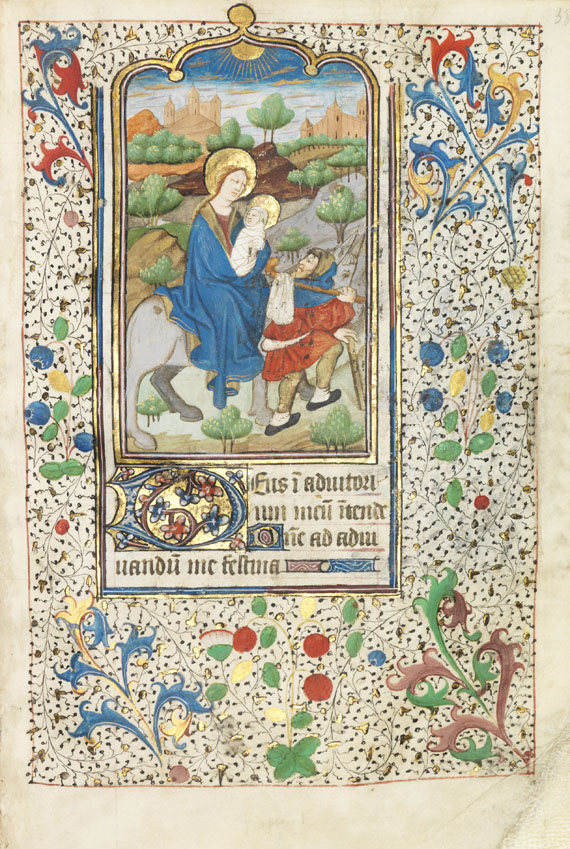 Deus ī adiutori
um meū ītende
Dn̄e ad adiu
uandū me festina